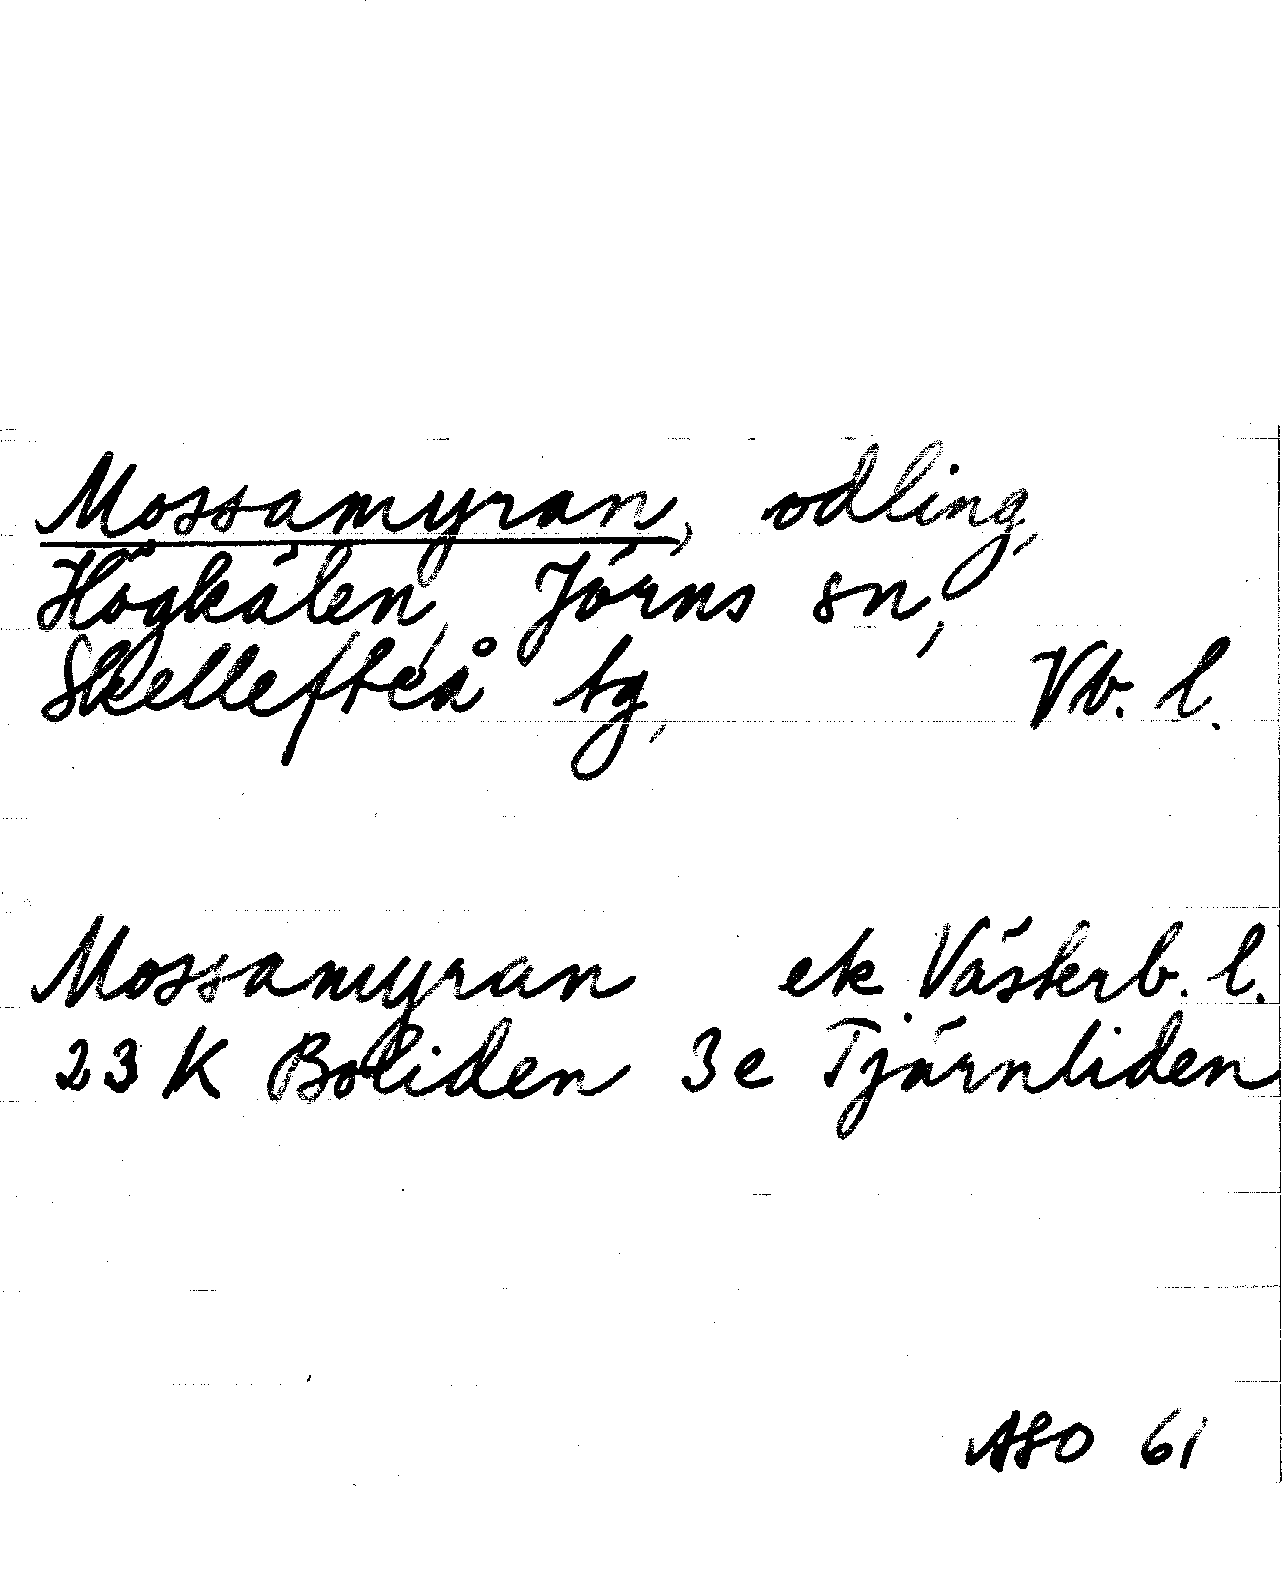 Mossamyran, odling,
Högkälen, Jörns sn,
Skellefteå tg, Vb. l.
Mossamyran ek Västerb. l.
23 K Boliden 3e Tjärnliden
ASO 61